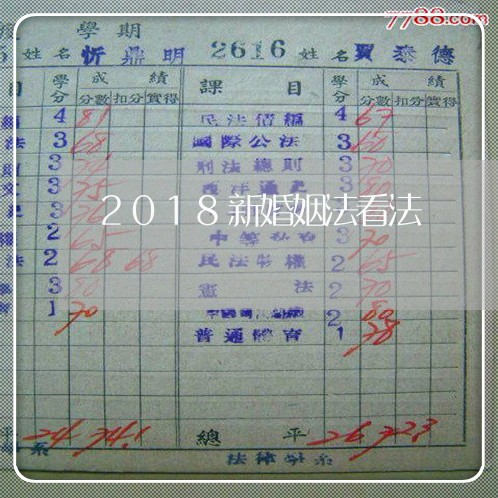 7788.com
學期
姓名 忻鼎明 2616 姓名 賈泰德
目 學分 成績 課目 學分 成績
分數 扣分 實得 分數 扣分 實得
4 81 民法債編 4 67
法 3 68 國際公法 3 60
3 刑法總則 3 70
3 75 3
2018新婚姻法看法
2 65 3 70
法 2 68 68 民法物權 2 65
3 80 憲法 2 70
1 70 2 80
普通體育 1 78
平 24 74.1 總平 26 72.3
系 法律學系